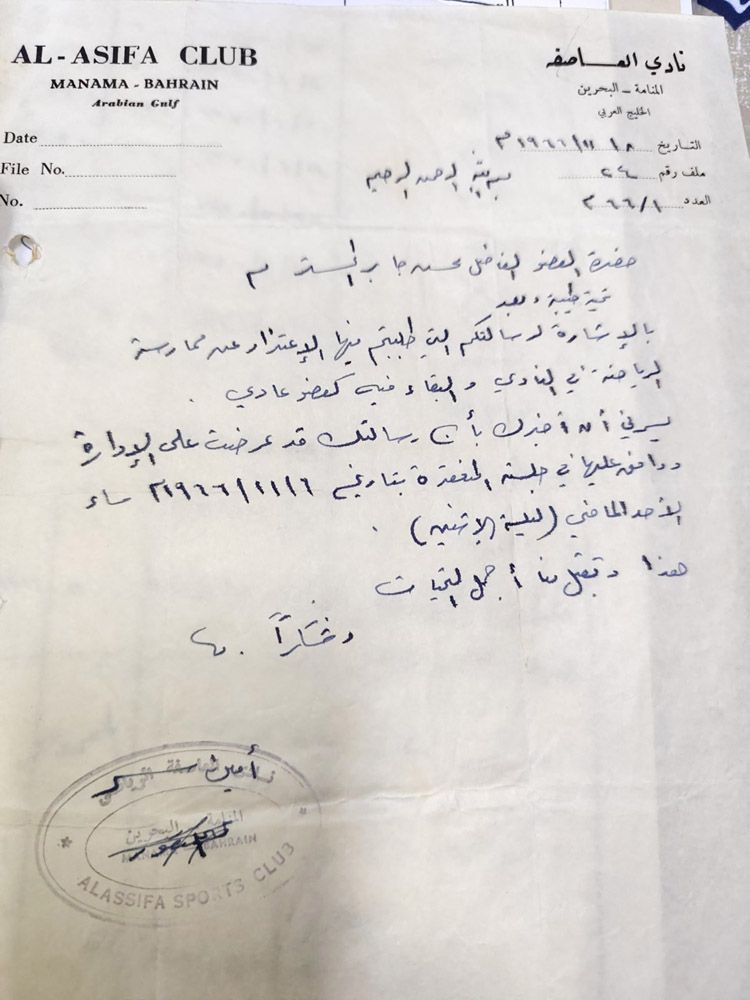 AL-ASIFA CLUB
MANAMA - BAHRAIN
Arabian Gulf
Date
File No.
No.
نادي العـاصفه
المنامة - البحرين
الخليج العربي
التاريخ ٨/١١/١٩٦٦م
ملف رقم ٢٤
العدد ٢٦٦/١
بسم الله الرحمن الرحيم
حضرة العضو الفاضل محسن جابر المحترم
تحية طيبة وبعد
بالإشارة لرسالتكم التي طلبتم فيها الإعتذار عن ممارسة
الرياضة في النادي والبقاء فيه كعضو عادي .
يسرني أن أخبرك بأن رسالتك قد عرضت على الإدارة
ووافق عليها في جلسته المنعقدة بتاريخ ٦/١١/١٩٦٦م مساء
الأحد الماضي (ليلة الإثنين) .
هذا وتقبل منا أجمل التحيات
وختاراً .
أمين سر
المنامة البحرين
MANAMA BAHRAIN
ALASSIFA SPORTS CLUB